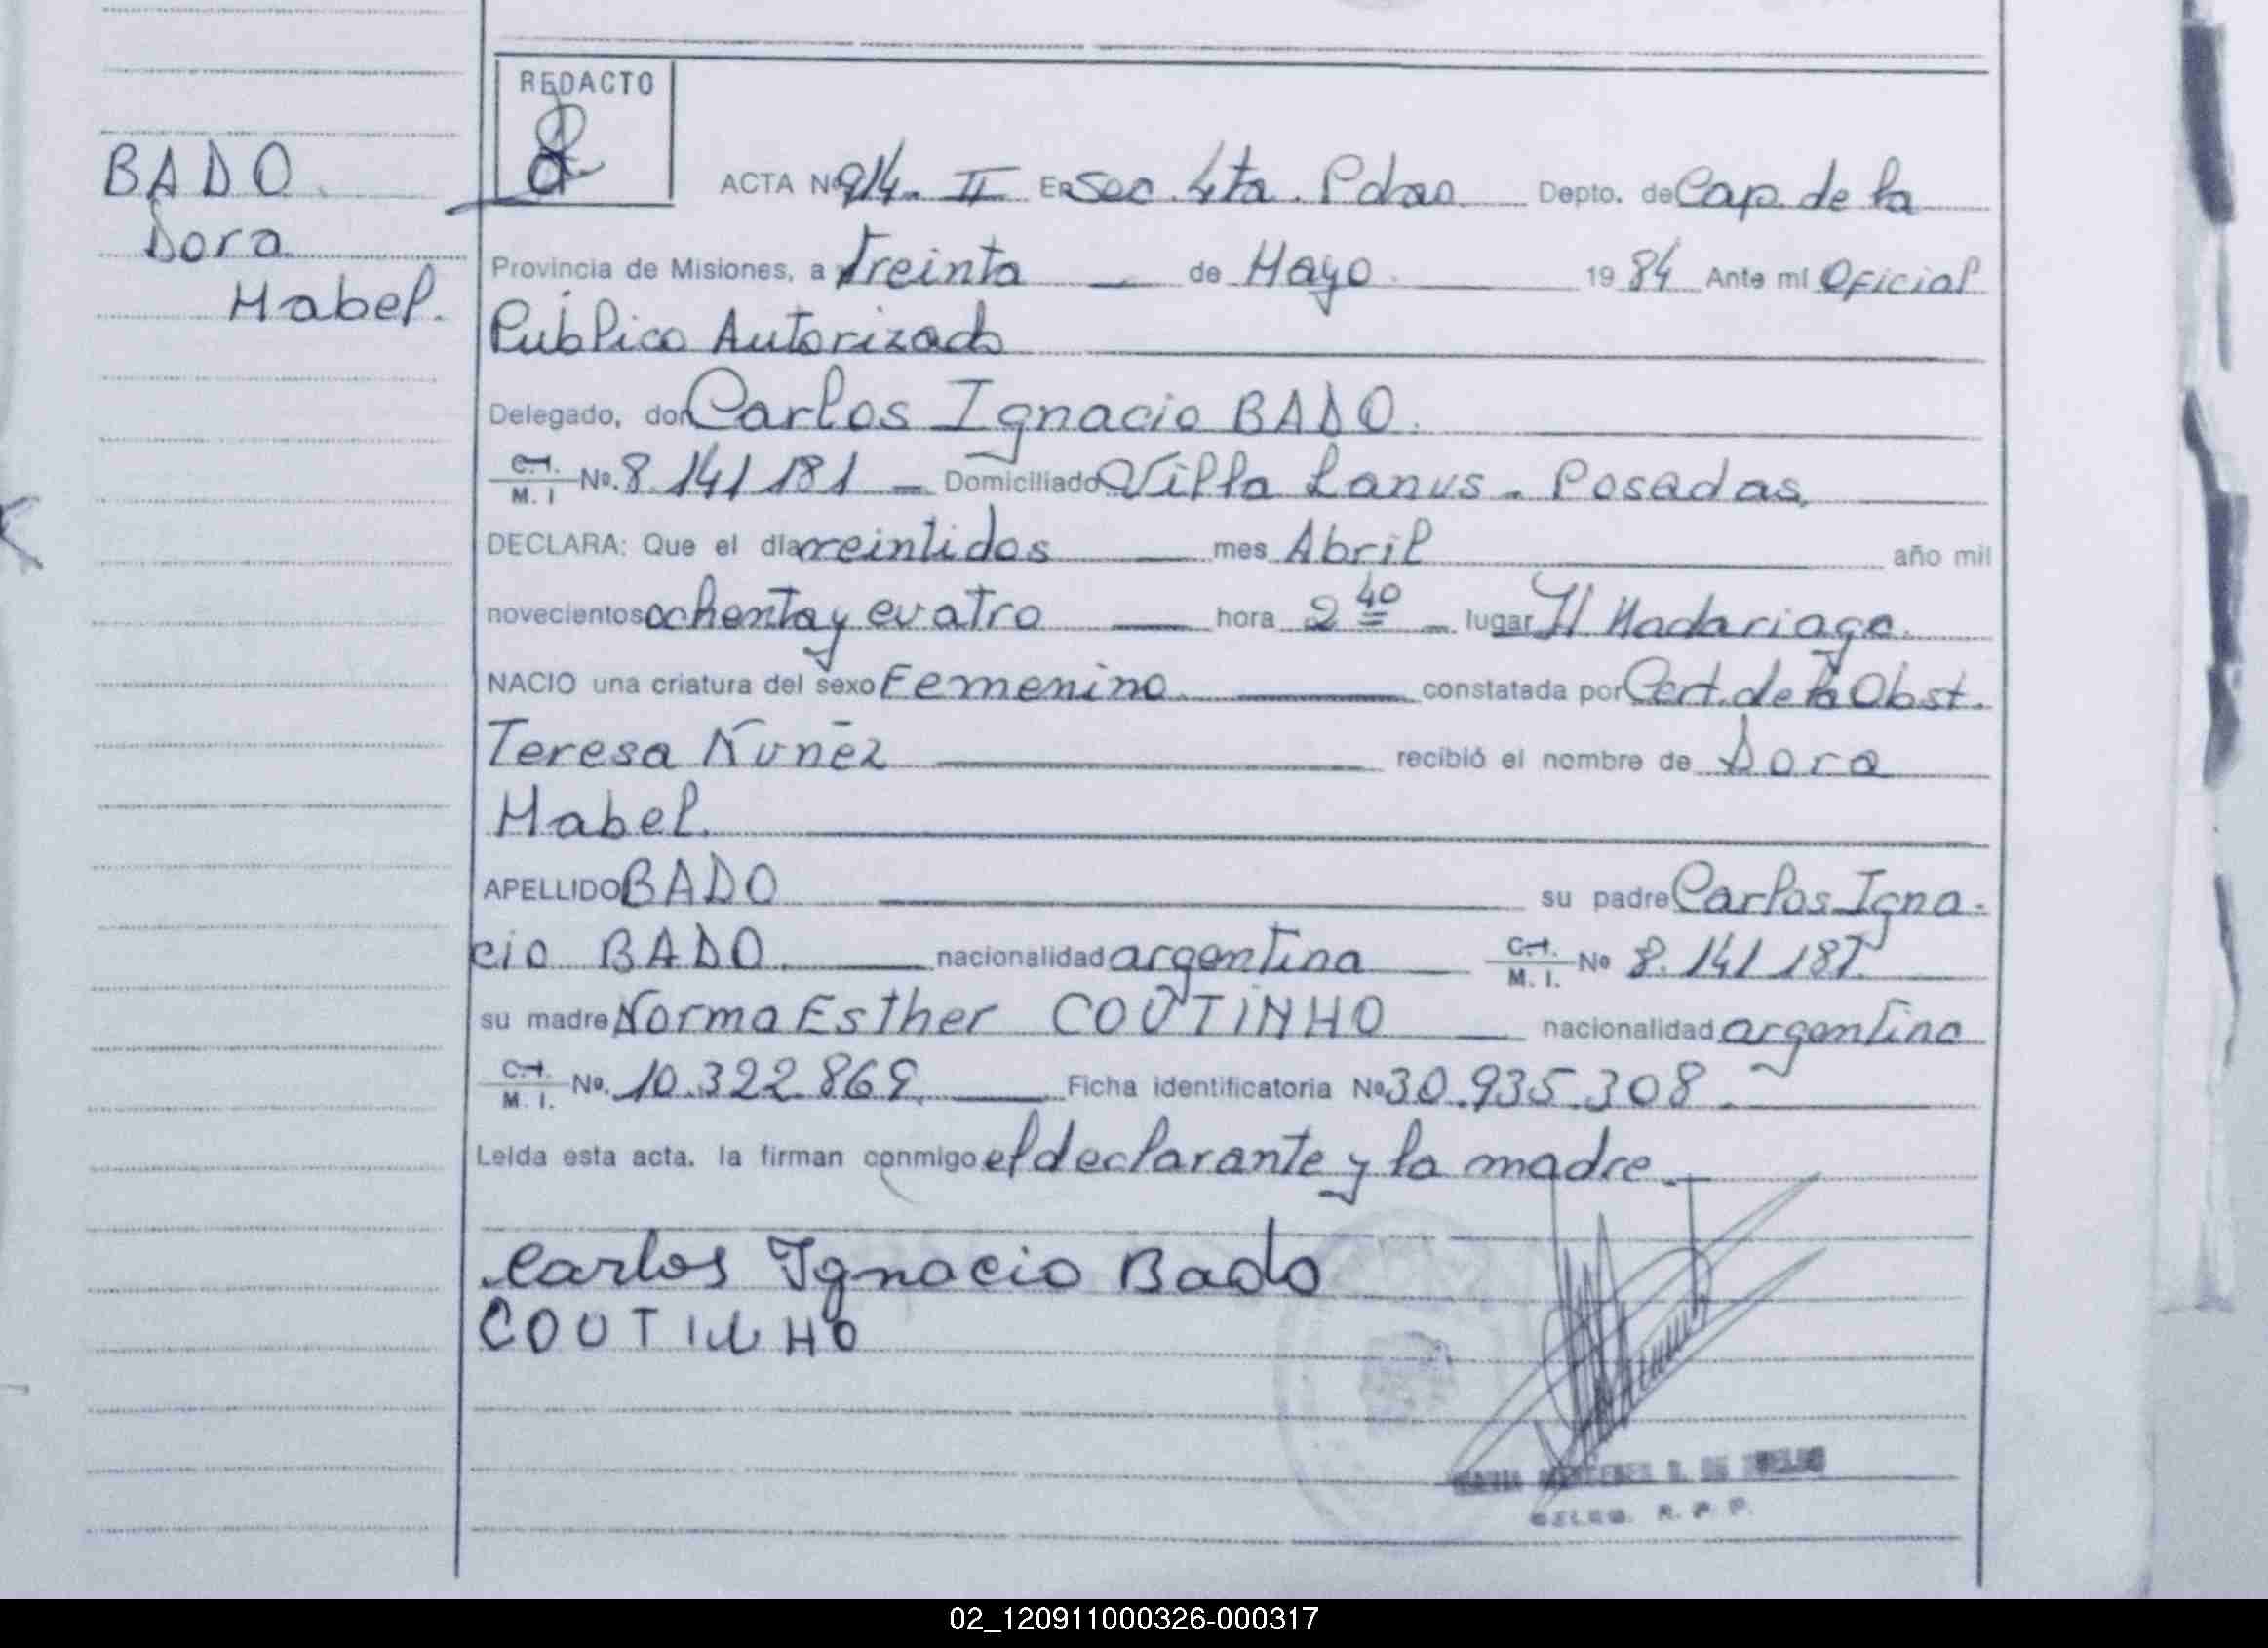 REDACTO
BADO
Dora
Mabel.
ACTA Nº 914. II En Sec. 4ta. Pdas Depto. de Cap. de la
Provincia de Misiones, a Treinta de Mayo 19 84 Ante mí Oficial
Público Autorizado
Delegado, don Carlos Ignacio BADO.
C.I. M. I Nº. 8.141.181 Domiciliado Villa Lanus - Posadas.
DECLARA: Que el día veintidos mes Abril año mil
novecientos ochenta y cuatro hora 2 40 lugar H Madariaga.
NACIO una criatura del sexo Femenino. constatada por Cert. de la Obst.
Teresa Nuñez recibió el nombre de Dora
Mabel.
APELLIDO BADO su padre Carlos Igna-
cio BADO. nacionalidad argentina C.I. M. I. Nº 8.141.181.
su madre Norma Esther COUTINHO nacionalidad argentina
C.I. M. I. Nº. 10.322.869. Ficha identificatoria Nº 30.935.308.
Leída esta acta. la firman conmigo el declarante y la madre.
Carlos Ignacio Bado
COUTINHO
DELEG. R. P. P.
02_120911000326-000317